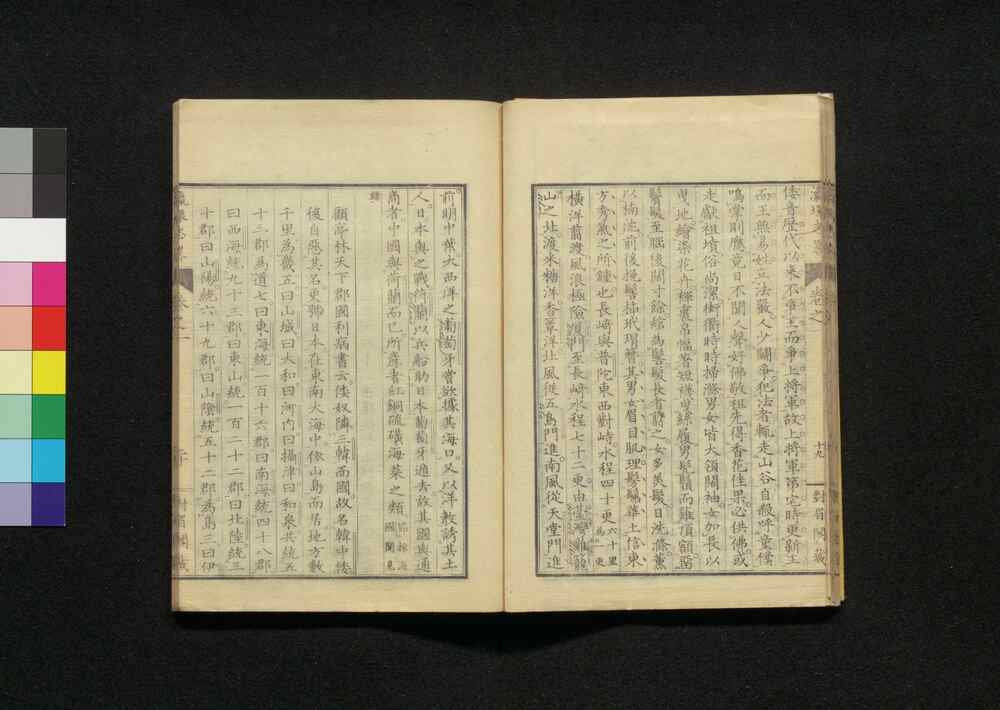 倭音歷代以來不爭王而爭上將軍故上將軍第宅時更新王
而王無易姓立法嚴人少鬭爭犯法者輒走山谷自殺呼童僕
鳴掌則應竟日不聞人聲好佛敬祖先得香花佳果必供佛或
走獻祖墳俗尚潔街衢時時掃滌男女皆大領闊袖女加長以
曳地繪染花卉褌裹帛幅著短襪曳絲履男髡頂而雖頂額留
鬢髮至腦後闊寸餘綰為髻髮長者剪之女多美髮日洗滌薰
以楠沈前後挽髻插玳瑁簪其男女眉目肌理鬈鬒華土信東
方秀氣之所鍾也長崎與普陀東西對峙水程四十更六十里為一更
橫洋萠渡風浪極險廈門至長崎水程七十二更由臺灣雞籠
山之北渡米糠洋香蕈洋北風從五島門進南風從天堂門進
前明中葉大西洋之葡萄牙嘗欲據其海口又以洋教誘其土
人日本與之戰荷蘭以兵船助日本葡萄牙遁去故其國與通
商者中國與荷蘭而已所產者紅銅硫磺海菜之類節採海國聞見
錄
顧亭林天下郡國利病書云倭奴隣三韓而國故名韓中倭
後自惡其名更號日本在東南大海中依山島而居地方數
千里為畿五曰山城曰大和曰河內曰攝津曰和泉共統五
十二郡為道七曰東海統一百十六郡曰南海統四十八郡
曰西海統九十三郡曰東山統一百二十二郡曰北陸統三
十郡曰山陽統六十九郡曰山陰統五十二郡為島三曰伊